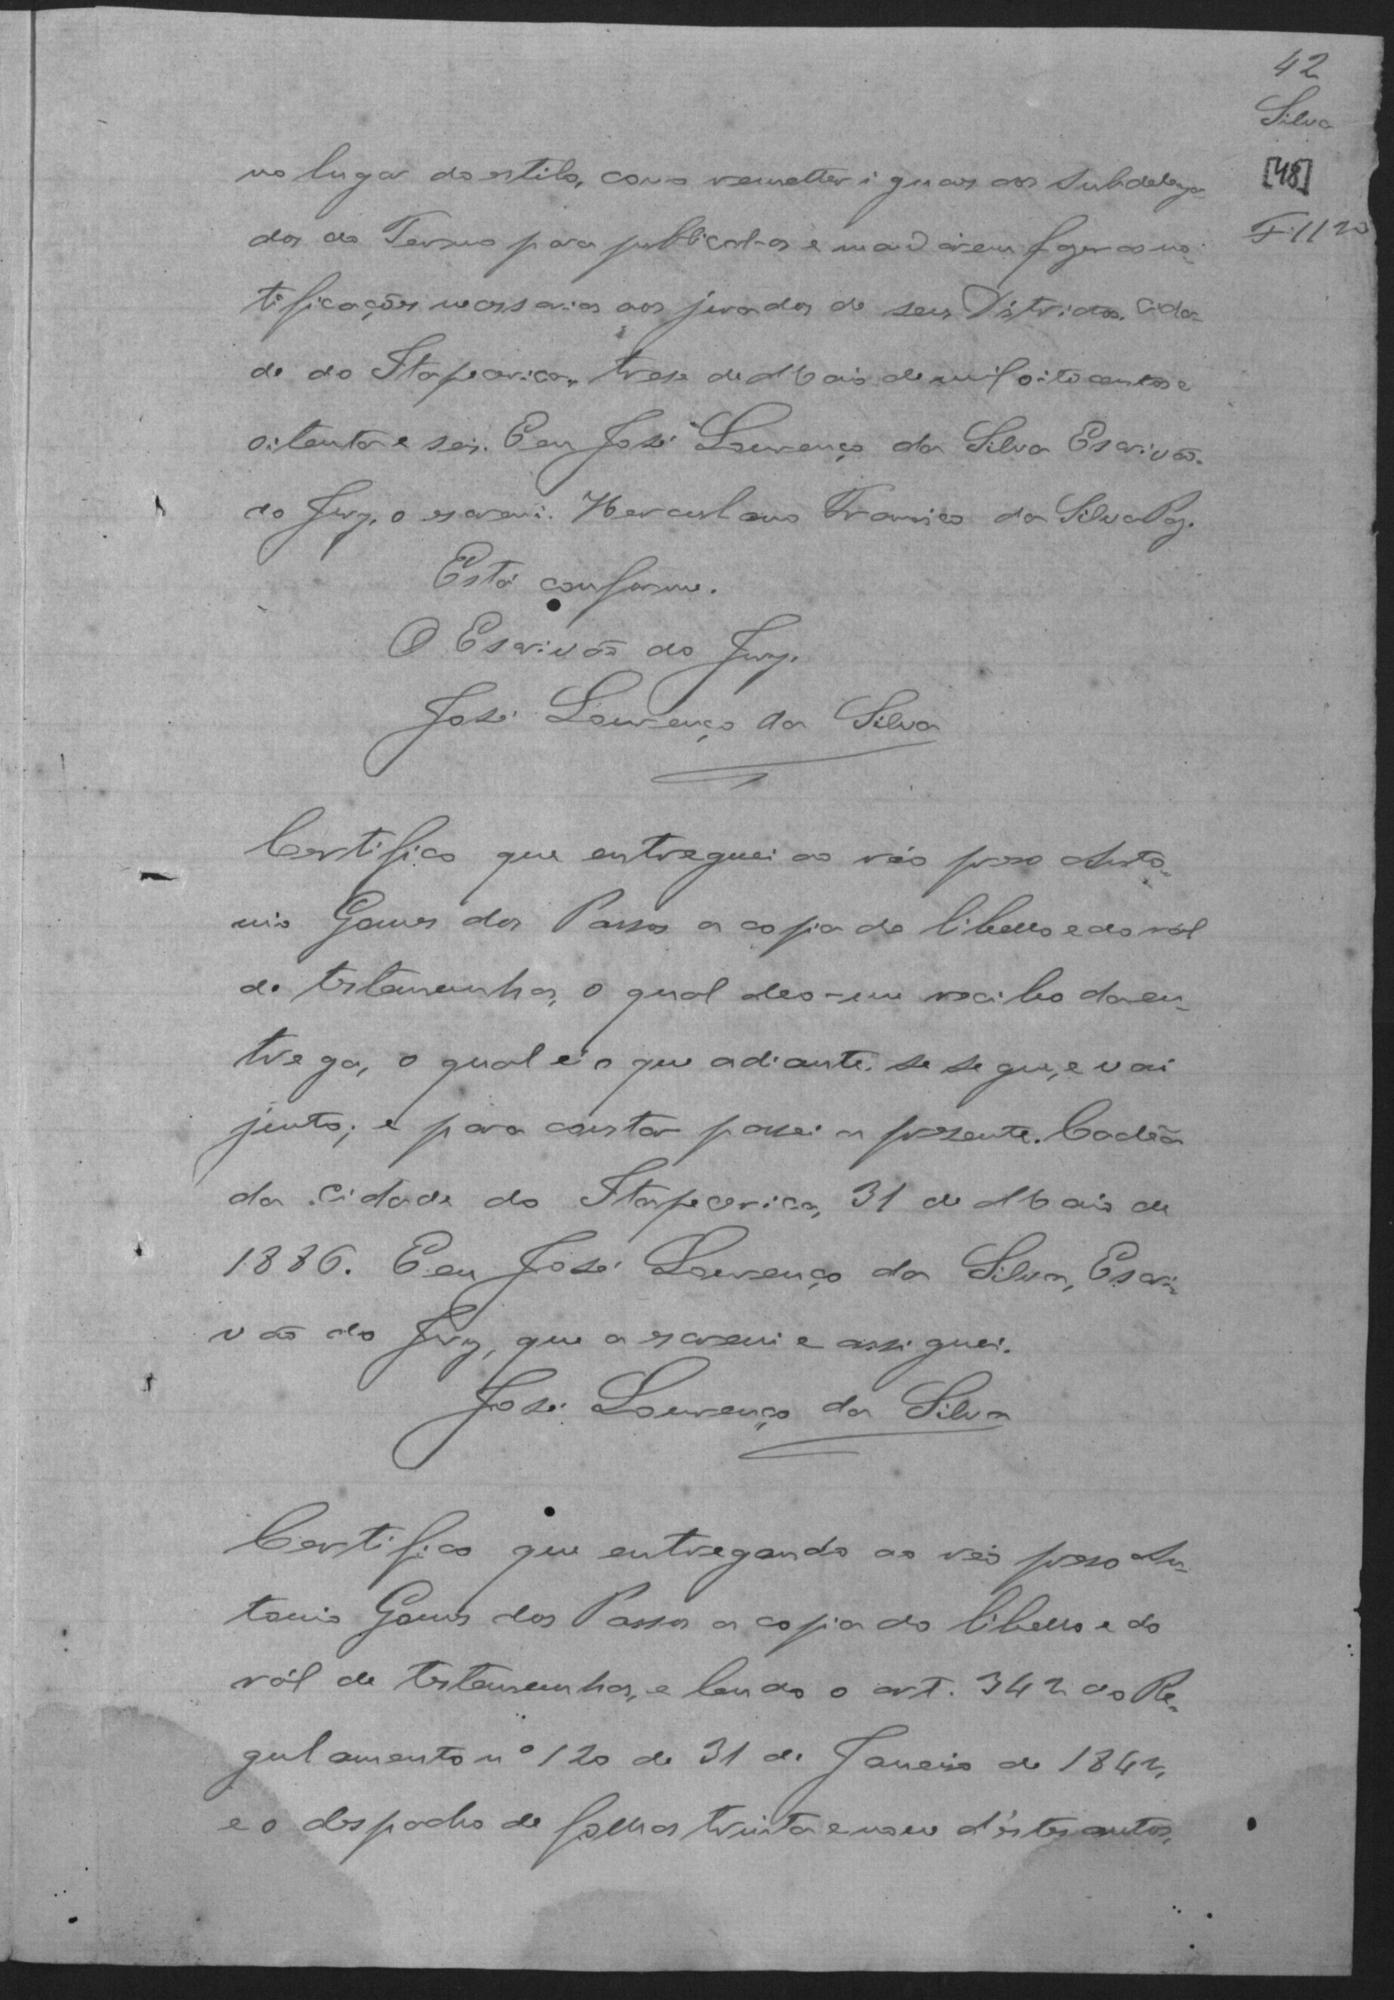 42
Silva
[48]
F 1120
no lugar do estilo, como remetter iguaes aos Subdelega-
dos do Termo para publical-os e mandarem fazer as no-
tificações necessarias aos jurados de seus Districtos. Cida-
de do Itapecerica, trese de Maio de mil oito centos e
oitenta e seis. E eu José Lourenço da Silva Escrivão
do Jury, o escrevi. Herculano Francisco da Silva Paz.
Está conforme.
O Escrivão do Jury.
José Lourenço da Silva
Certifico que entreguei ao réo preso Anto-
nio Gomes dos Passos a copia do libello e do ról
de testemunhas, o qual deo-me recibo da en-
trega, o qual é o que adiante se segue, e vai
junto; e para constar passei a presente. Cadêa
da Cidade do Itapecerica, 31 de Maio de
1886. E eu José Lourenço da Silva, Escri-
vão do Jury, que a escrevi e assignei.
José Lourenço da Silva
Certifico que entregando ao réo preso An-
tonio Gomes dos Passos a copia do libello e do
ról de testemunhas, e lendo o art. 342 do Re-
gulamento nº 120 de 31 de Janeiro de 1842,
e o despacho de folhas trinta e nove d'estes autos,